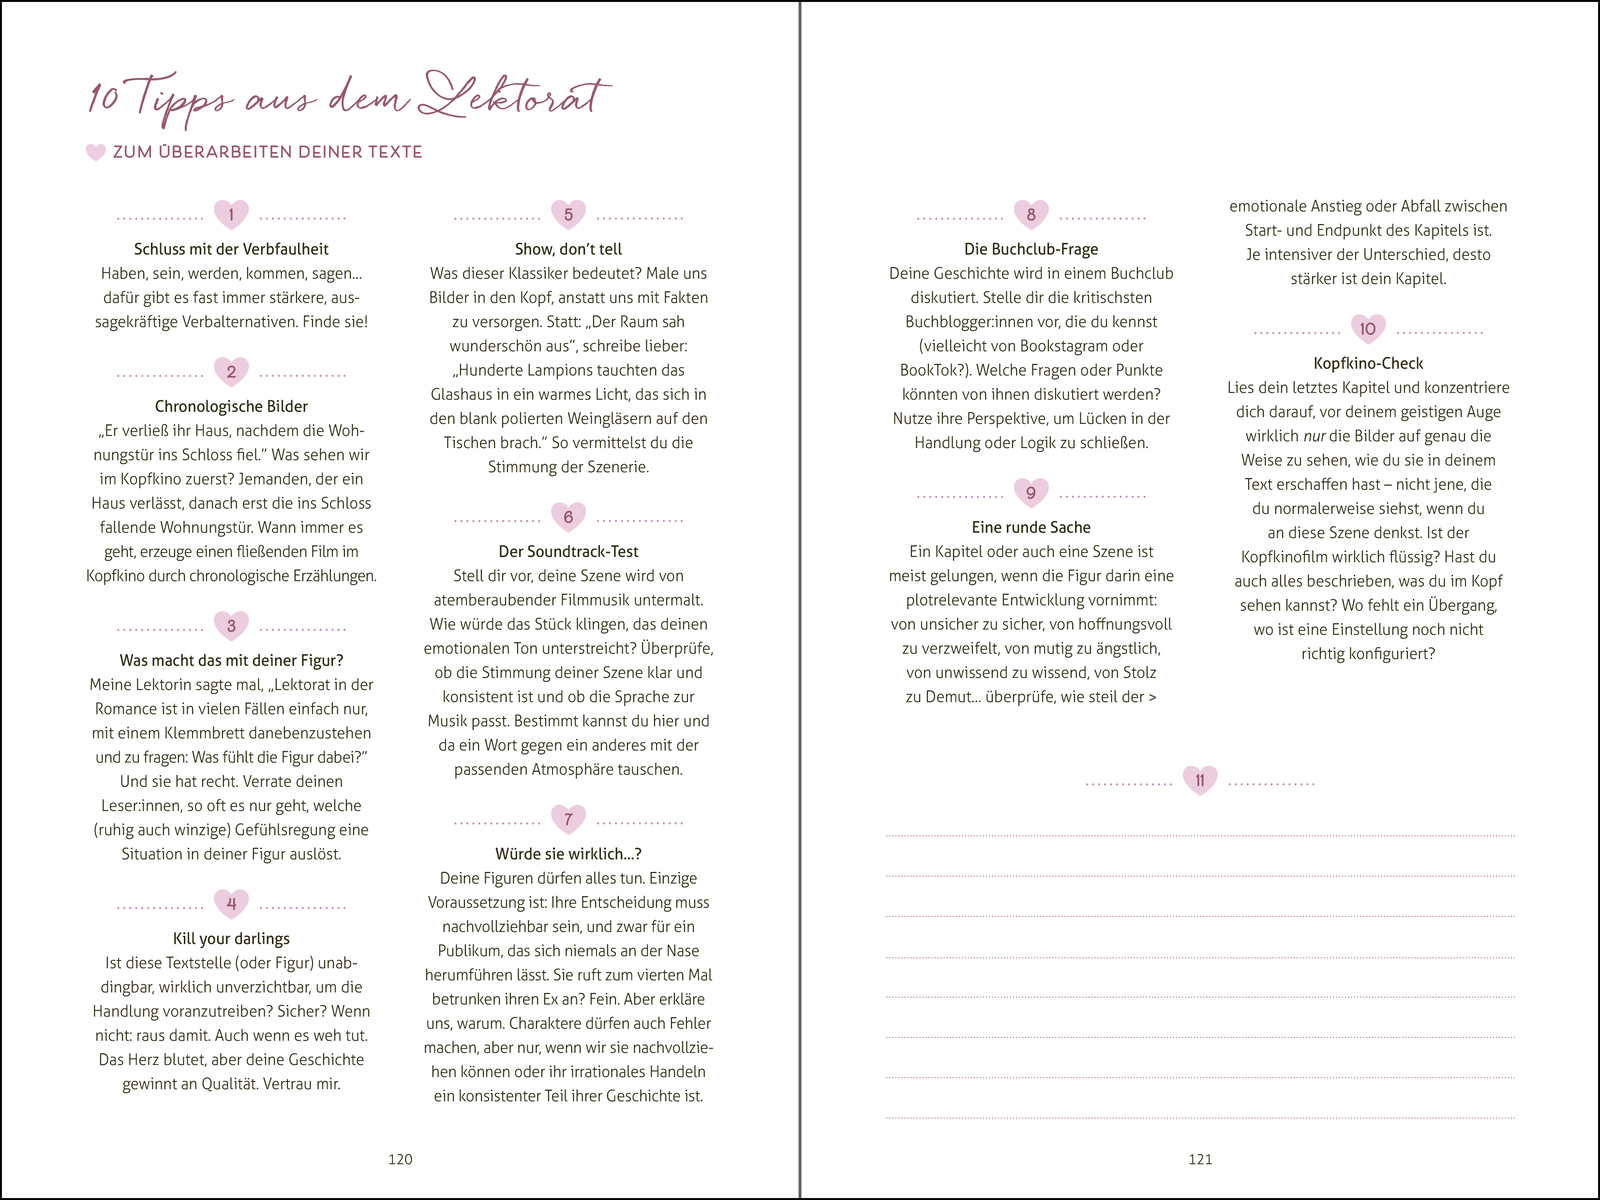 10 Tipps aus dem Lektorat
ZUM ÜBERARBEITEN DEINER TEXTE
1
Schluss mit der Verbfaulheit
Haben, sein, werden, kommen, sagen...
dafür gibt es fast immer stärkere, aus-
sagekräftige Verbalternativen. Finde sie!
2
Chronologische Bilder
„Er verließ ihr Haus, nachdem die Woh-
nungstür ins Schloss fiel.“ Was sehen wir
im Kopfkino zuerst? Jemanden, der ein
Haus verlässt, danach erst die ins Schloss
fallende Wohnungstür. Wann immer es
geht, erzeuge einen fließenden Film im
Kopfkino durch chronologische Erzählungen.
3
Was macht das mit deiner Figur?
Meine Lektorin sagte mal, „Lektorat in der
Romance ist in vielen Fällen einfach nur,
mit einem Klemmbrett danebenzustehen
und zu fragen: Was fühlt die Figur dabei?“
Und sie hat recht. Verrate deinen
Leser:innen, so oft es nur geht, welche
(ruhig auch winzige) Gefühlsregung eine
Situation in deiner Figur auslöst.
4
Kill your darlings
Ist diese Textstelle (oder Figur) unab-
dingbar, wirklich unverzichtbar, um die
Handlung voranzutreiben? Sicher? Wenn
nicht: raus damit. Auch wenn es weh tut.
Das Herz blutet, aber deine Geschichte
gewinnt an Qualität. Vertrau mir.
5
Show, don’t tell
Was dieser Klassiker bedeutet? Male uns
Bilder in den Kopf, anstatt uns mit Fakten
zu versorgen. Statt: „Der Raum sah
wunderschön aus“, schreibe lieber:
„Hunderte Lampions tauchten das
Glashaus in ein warmes Licht, das sich in
den blank polierten Weingläsern auf den
Tischen brach.“ So vermittelst du die
Stimmung der Szenerie.
6
Der Soundtrack-Test
Stell dir vor, deine Szene wird von
atemberaubender Filmmusik untermalt.
Wie würde das Stück klingen, das deinen
emotionalen Ton unterstreicht? Überprüfe,
ob die Stimmung deiner Szene klar und
konsistent ist und ob die Sprache zur
Musik passt. Bestimmt kannst du hier und
da ein Wort gegen ein anderes mit der
passenden Atmosphäre tauschen.
7
Würde sie wirklich...?
Deine Figuren dürfen alles tun. Einzige
Voraussetzung ist: Ihre Entscheidung muss
nachvollziehbar sein, und zwar für ein
Publikum, das sich niemals an der Nase
herumführen lässt. Sie ruft zum vierten Mal
betrunken ihren Ex an? Fein. Aber erkläre
uns, warum. Charaktere dürfen auch Fehler
machen, aber nur, wenn wir sie nachvollzie-
hen können oder ihr irrationales Handeln
ein konsistenter Teil ihrer Geschichte ist.
120
8
Die Buchclub-Frage
Deine Geschichte wird in einem Buchclub
diskutiert. Stelle dir die kritischsten
Buchblogger:innen vor, die du kennst
(vielleicht von Bookstagram oder
BookTok?). Welche Fragen oder Punkte
könnten von ihnen diskutiert werden?
Nutze ihre Perspektive, um Lücken in der
Handlung oder Logik zu schließen.
9
Eine runde Sache
Ein Kapitel oder auch eine Szene ist
meist gelungen, wenn die Figur darin eine
plotrelevante Entwicklung vornimmt:
von unsicher zu sicher, von hoffnungsvoll
zu verzweifelt, von mutig zu ängstlich,
von unwissend zu wissend, von Stolz
zu Demut... überprüfe, wie steil der >
emotionale Anstieg oder Abfall zwischen
Start- und Endpunkt des Kapitels ist.
Je intensiver der Unterschied, desto
stärker ist dein Kapitel.
10
Kopfkino-Check
Lies dein letztes Kapitel und konzentriere
dich darauf, vor deinem geistigen Auge
wirklich nur die Bilder auf genau die
Weise zu sehen, wie du sie in deinem
Text erschaffen hast – nicht jene, die
du normalerweise siehst, wenn du
an diese Szene denkst. Ist der
Kopfkinofilm wirklich flüssig? Hast du
auch alles beschrieben, was du im Kopf
sehen kannst? Wo fehlt ein Übergang,
wo ist eine Einstellung noch nicht
richtig konfiguriert?
11
121